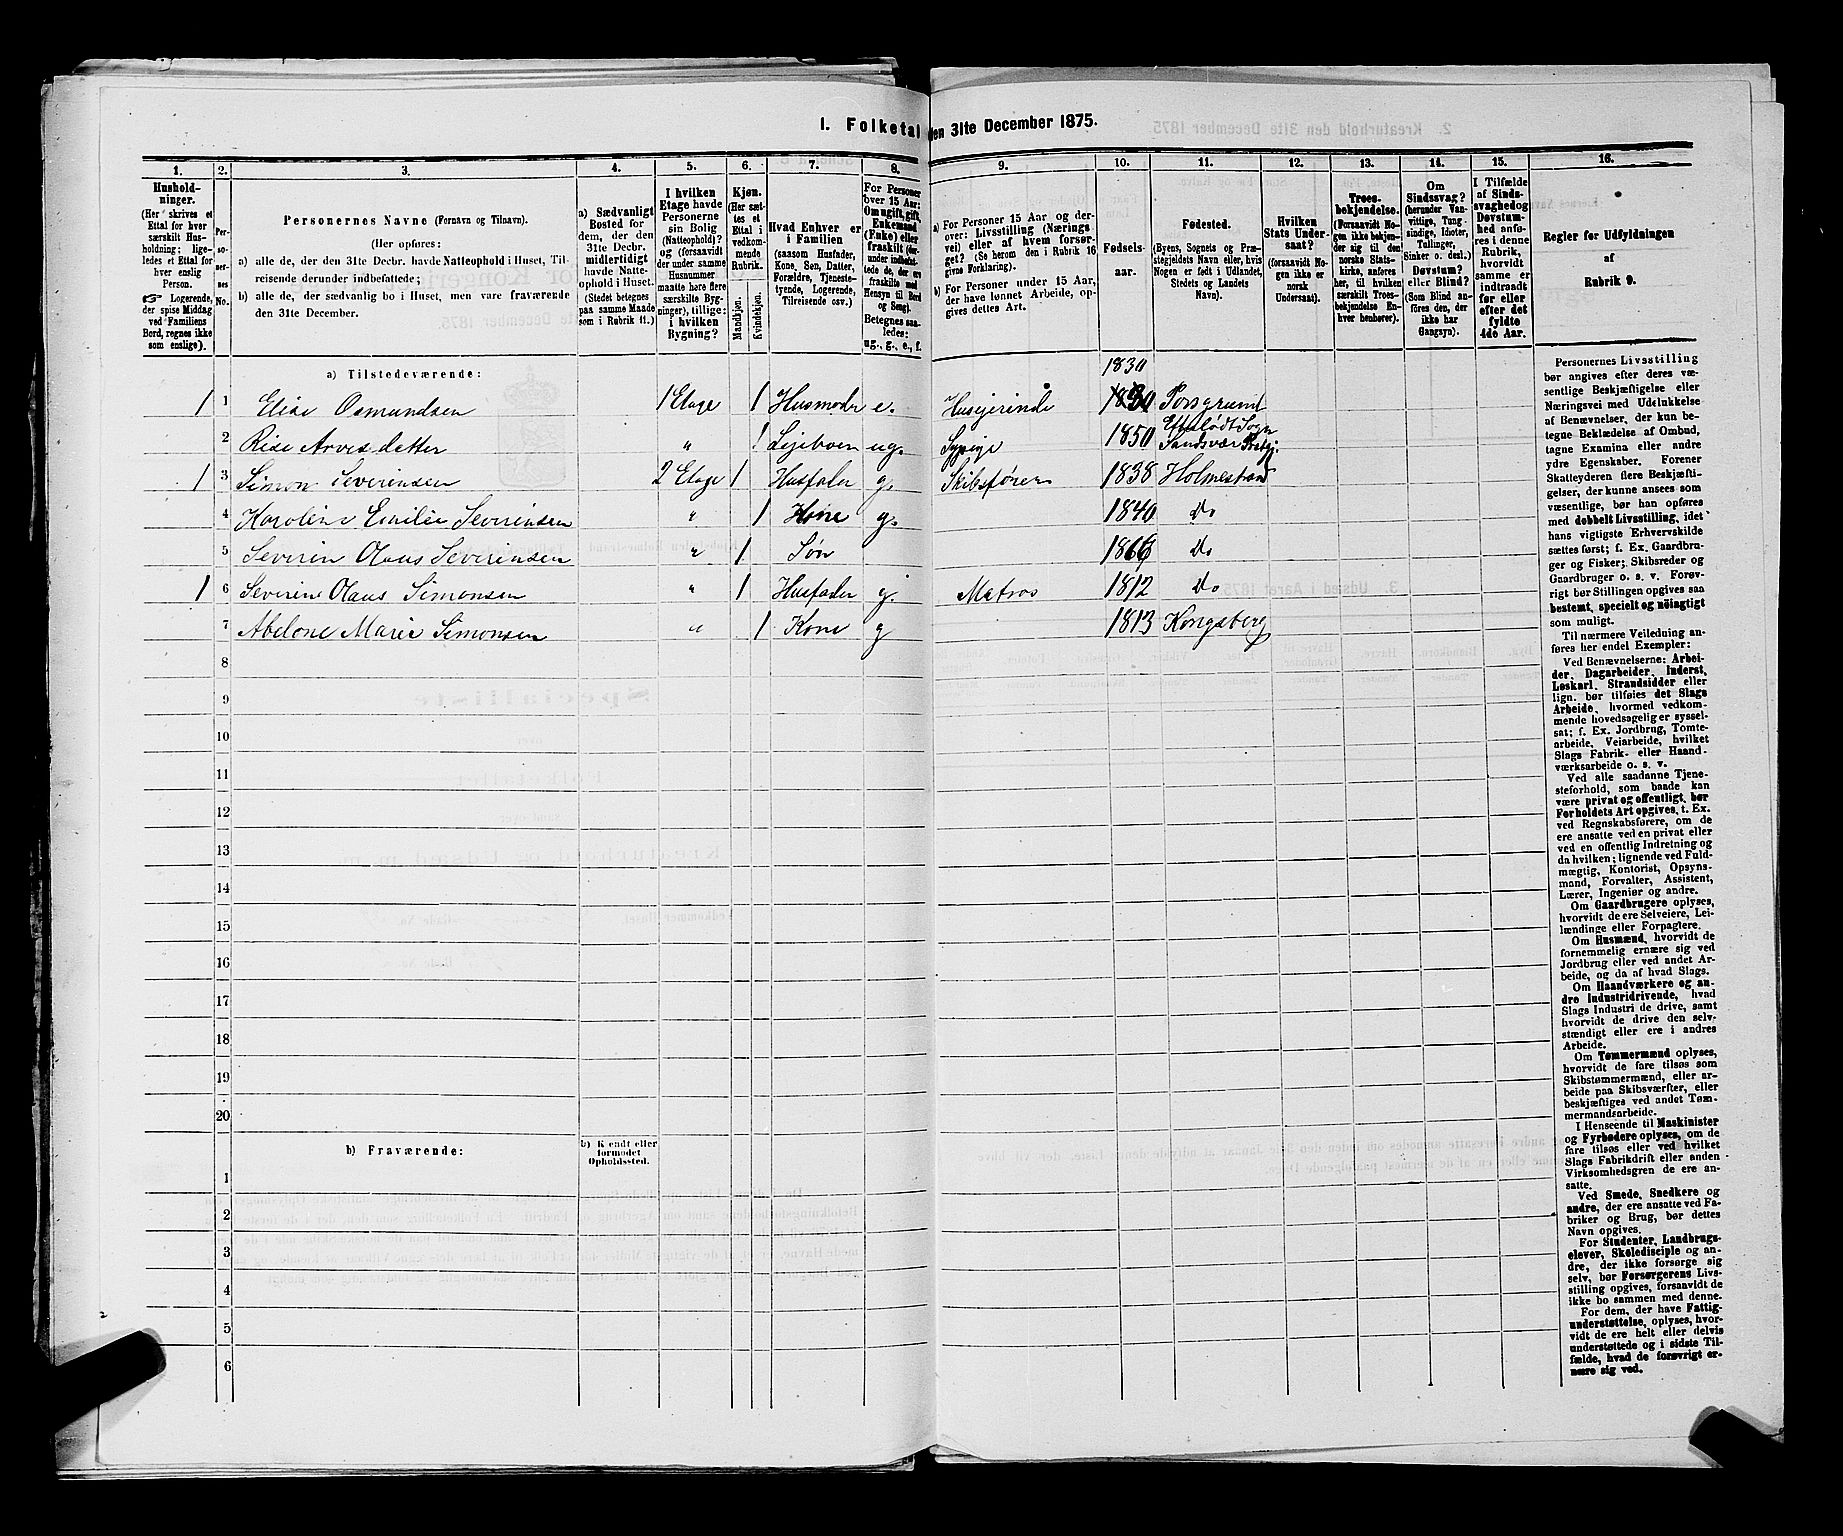 I. Folketal den 31te December 1875.
1. 2. 3. 4. 5. 6. 7. 8. 9. 10. 11. 12. 13. 14. 15. 16.
Hushold-
ninger.
(Her skrives et
Ettal for hver
særskilt Hus-
holdning; lige-
ledes et Ettal for
hver enslig
Person.
Logerende,
der spise Middag
ved Familiens
Bord, regnes ikke
som enslige).
Per-
so-
ner-
nes
No.
Personernes Navne (Fornavn og Tilnavn).
(Her opføres:
a) alle de, der den 31te Decbr. havde Natteophold i Huset, Til-
reisende derunder indbefattede;
b) alle de, der sædvanlig bo i Huset, men vare fraværende
den 31te December.
a) Sædvanligt
Bosted for
dem, der den
31te Decbr.
midlertidigt
havde Natte-
ophold i Huset.
(Stedet betegnes
paa samme Maade
som i Rubrik 11.)
I hvilken
Etage havde
Personerne
sin Bolig
(Natteophold)?
og (forsaavidt
der under samme
Husnummer
maatte høre flere
særskilte Byg-
ninger), tillige:
i hvilken
Bygning?
Kjøn.
(Her sæt-
tes et
Ettal i
vedkom-
mende
Rubrik.
Mandkjøn.
Kvindekjøn.
Hvad Enhver er
i Familien
(saasom Husfader,
Kone, Søn, Datter,
Forældre, Tjeneste-
tyende, Logerende,
Tilreisende osv.)
For Personer
over 15 Aar:
Om ugift, gift,
Enkemand
(Enke) eller
fraskilt (her-
under indbefat-
tede de, der ere
fraskilte med
Hensyn til Bord
og Seng).
Betegnes saa-
ledes:
ug., g., e., f.
a) For Personer 15 Aar og der-
over: Livsstilling (Nærings
vei) eller af hvem forsør-
get? (Se herom den i Rubrik 16
givne Forklaring).
b) For Personer under 15 Aar,
der have lønnet Arbeide, op-
gives dettes Art.
Fødsels-
aar.
Fødested.
(Byens, Sognets og Præ-
stegjeldets Navn eller, hvis
Nogen er født i Udlandet,
Stedets og Landets
Navn).
Hvilken
Stats Under-
saat?
(forsaavidt No-
gen ikke er
norsk
Undersaat).
Troes-
bekjendelse.
(Forsaavidt No-
gen ikke bekjen-
der sig til den
norske Stats-
kirke, anføres
her, til hvilken
særskilt Troes-
bekjendelse En-
hver henhører).
Om
Sindssvag?
(herunder Van-
vittige, Tung-
sindige, Idioter,
Tullinger,
Sinker o. desl.)
Døvstum?
eller Blind?
(Som Blind an-
føres den, der
ikke har
Gangsyn).
I Tilfælde
af Sinds-
svaghed og
Døvstum-
hed anfø-
res i denne
Rubrik,
hvorvidt
samme er
indtraadt
før eller
efter det
fyldte
4de Aar.
Regler for Udfyldningen
af
Rubrik 9.
a) Tilstedeværende:
1830
1 1 Elise Osmundsen 1 Etage 1 Husmoder e. Huseierinde 1830 Porsgrund
2 Rise Arvesdatter " 1 Lejeboer ug. Sypige 1850 Eftelødt Sogn Sandsvær Prestgj.
1 3 Simon Severinsen 2 Etage 1 Husfader g. Skibsfører 1838 Holmestrand
4 Karoline Emilie Severinsen " 1 Kone g. 1840 Do
5 Severin Olaus Severinsen " 1 Søn 1866 Do
1 6 Severine Olaus Simonsen " 1 Husfader g. Matros 1812 Do
7 Abelone Marie Simonsen " 1 Kone g 1813 Kongsberg
8
9
10
11
12
13
14
15
16
17
18
19
20
b) Fraværende:
b) Kendt eller
formodet
Opholdssted.
1
2
3
4
5
6
Personernes Livsstilling
bør angives efter deres væ-
sentlige Beskjæftigelse eller
Næringsvei med Udelukkelse
af Benævnelser, der kun be-
tegne Beklædelse af Ombud,
tagne Examina eller andre
ydre Egenskaber. Forener
Skatteyderen flere Beskjæfti-
gelser, der kunne ansees som
væsentlige, bør han opføres
med dobbelt Livsstilling, idet
hans vigtigste Erhvervskilde
sættes først; f. Ex. Gaardbru-
ger og Fisker; Skibsreder og
Gaardbruger o. s. v. Forøv-
rigt bør Stillingen opgives saa
bestemt, specielt og nøiagtigt
som muligt.
Til nærmere Veiledning an-
føres her endel Exempler:
Ved Benævnelserne: Arbei-
der, Dagarbeider, Inderst,
Løskarl, Strandsidder eller
lign. bør tilføies det Slags
Arbeide, hvormed vedkom-
mende hovedsagelig er syssel-
sat; f. Ex. Jordbrug, Tomte-
arbeide, Veiarbeide, hvilket
Slags Fabrik- eller Haand-
værksarbeide o. s. v.
Ved alle saadanne Tjene-
steforhold, som baade kan
være privat og offentligt, bør
Forholdets Art opgives, t. Ex.
ved Regnskabsførere, om de
ere ansatte ved en privat eller
ved en offentlig Indretning og
da hvilken; lignende ved Fuld-
mægtig, Kontorist, Opsyns-
mand, Forvalter, Assistent,
Lærer, Ingeniør og andre.
Om Gaardbrugere oplyses,
hvorvidt de ere Selveiere, Lei-
lændinge eller Forpagtere.
Om Husmænd, hvorvidt de
fornemmelig ernære sig ved
Jordbrug eller ved andet Ar-
beide, og da af hvad Slags.
Om Haandværkere og an-
dre Industridrivende, hvad
Slags Industri de drive, samt
hvorvidt de drive den selv-
stændigt eller ere i andres
Arbeide.
Om Tømmermænd oplyses,
hvorvidt de fare tilsøs som
Skibstømmermænd, eller ar-
beide paa Skibsværfter, eller
beskjæftiges ved andet Tøm-
mermandsarbeide.
I Henseende til Maskinister
og Fyrbødere oplyses, om de
fare tilsøs eller ved hvilket
Slags Fabrikdrift eller anden
Virksomhedsgren de ere an-
satte.
Ved Smede, Snedkere og
andre, der ere ansatte ved Fa-
briker og Brug, bør dettes
Navn opgives.
For Studenter, Landbrugs-
elever, Skoledisciple og an-
dre, der ikke forsørge sig
selv, bør Forsørgerens Livs-
stilling opgives, forsaavidt de
ikke bo sammen med denne.
For dem, der have Fattig-
understøttelse, oplyses, hvor-
vidt de ere helt eller delvis
understøttede og i sidste Til-
fælde, hvad de forøvrigt er-
nære sig ved.